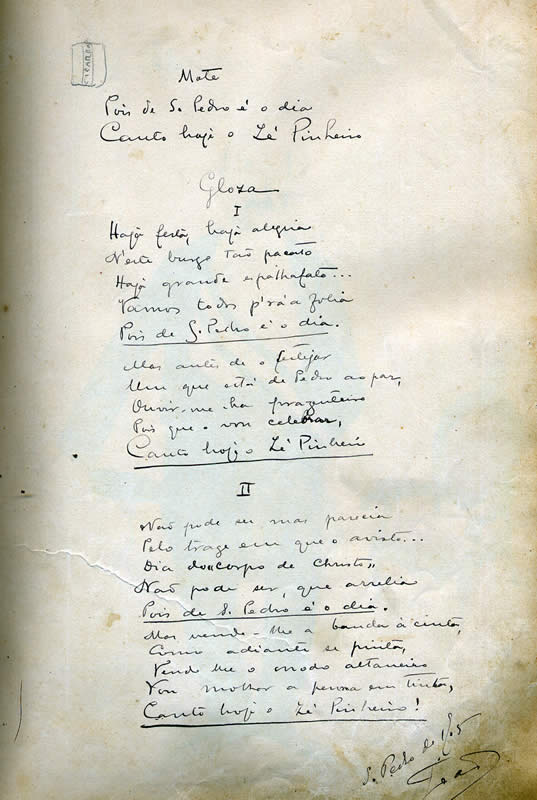 Mote
Pois de S. Pedro é o dia
Canto hoje o Zé Pinheiro
Gloza
I
Haja festa, haja alegria
N'este burgo tão pacato
Haja grande espalhafato...
Vamos todos p'rá folia
Pois de S. Pedro é o dia.
Mas antes de o festejar
Um que está de Pedro ao par,
Ouvir-me-ha prazenteiro
Pois que o vou celebrar,
Canto hoje o Zé Pinheiro
II
Não pode ser mas parecia
Pelo trage em que o avisto...
Dia do "corpo de Christo",
Não pode ser, que arrelia
Pois de S. Pedro é o dia.
Mas vendo-lhe a banda à cinta,
Como adiante se pinta,
Vendo lhe o modo altaneiro
Vou molhar a penna em tinta,
Canto hoje o Zé Pinheiro!
S. Pedro de